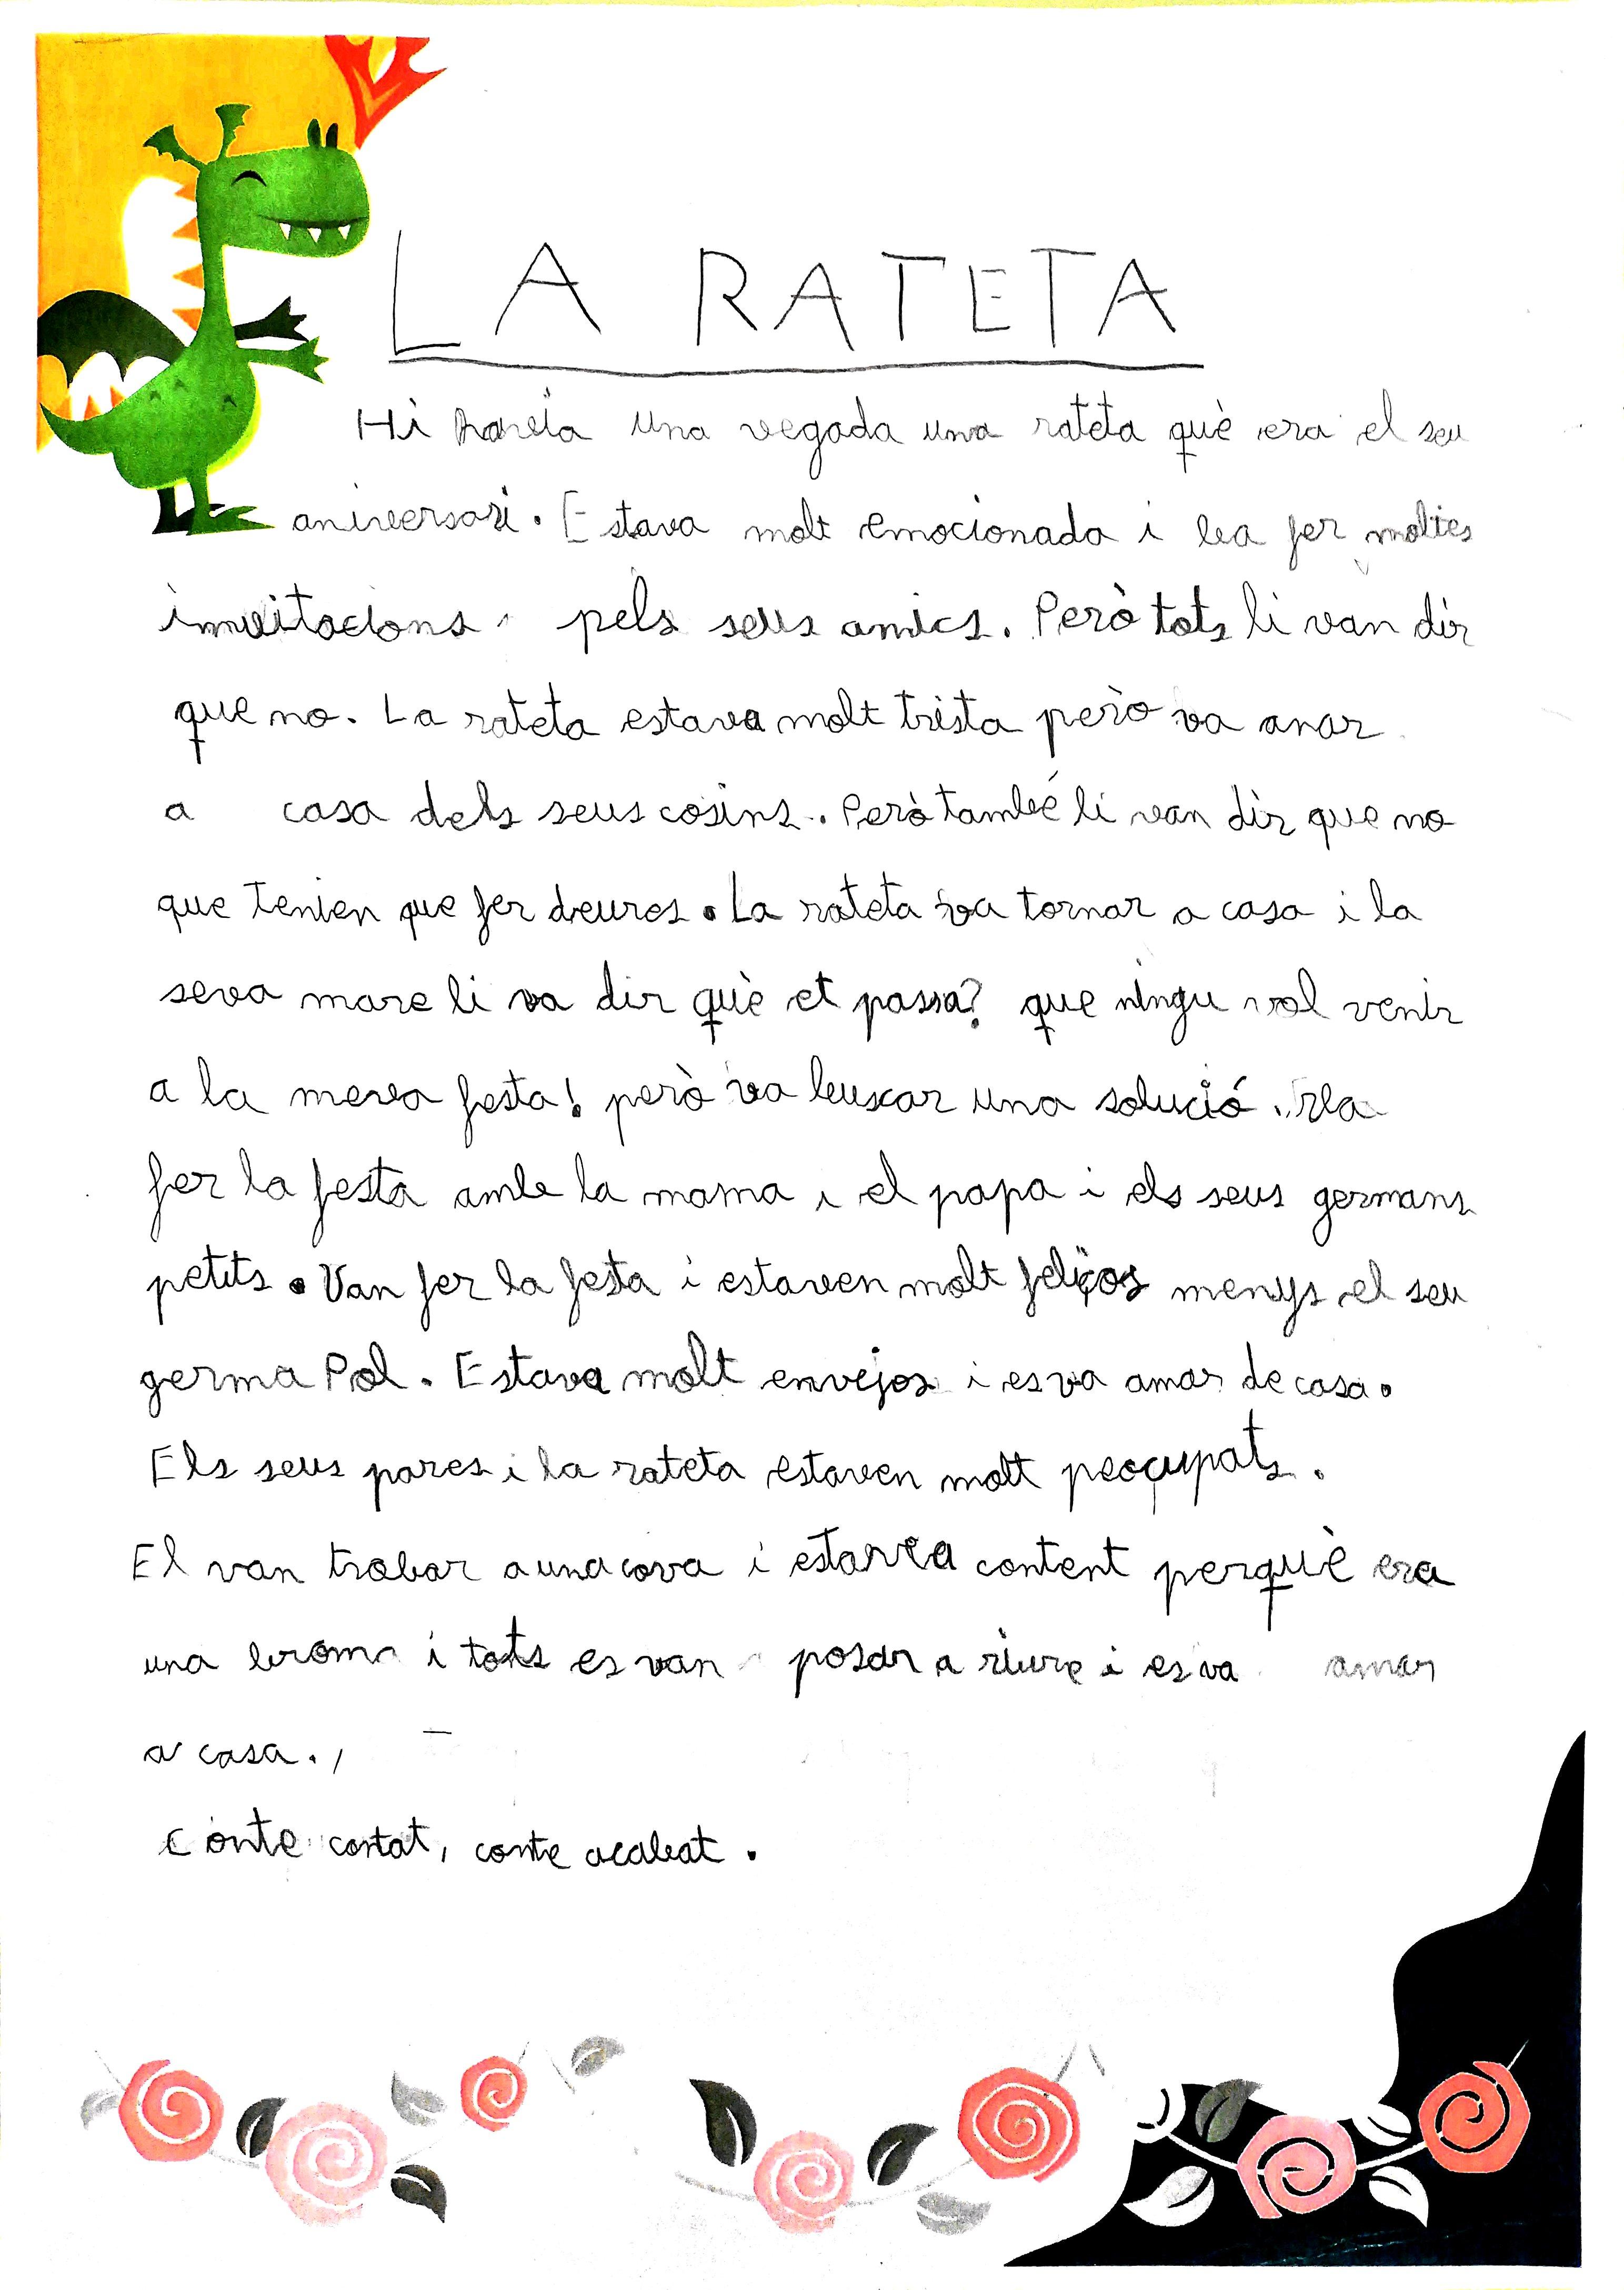 LA RATETA
Hi havia una vegada una rateta què era el seu
aniversari. Estava molt emocionada i va fer moltes
invitacions pels seus amics. Però tots li van dir
que no. La rateta estava molt trista però va anar
a casa dels seus cosins. Però també li van dir que no
que tenien que fer deures. La rateta va tornar a casa i la
seva mare li va dir què et passa? que ningu vol venir
a la meva festa! però va buscar una solució. Va
fer la festa amb la mama i el papa i els seus germans
petits. Van fer la festa i estaven molt feliços menys el seu
germa Pol. Estava molt envejos i es va anar de casa.
Els seus pares i la rateta estaven molt peocupats.
El van trobar a una cova i estava content perquè era
una broma i tots es van posar a riure i es va anar
a casa.
Conte contat, conte acabat.